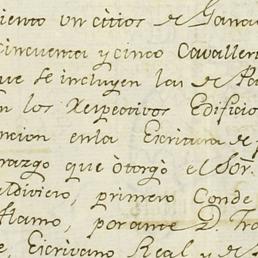 iento un citios de Gana
Cincuenta y cinco Cavaller
ue se incluyen las de Pa
n los Respectivos Edificio
ncion enla Escritura de
razgo que otorgó el Sõr.
aldivieso, primero Conde
Alamo, por ante D. Fra
e, Escrivano Real y de